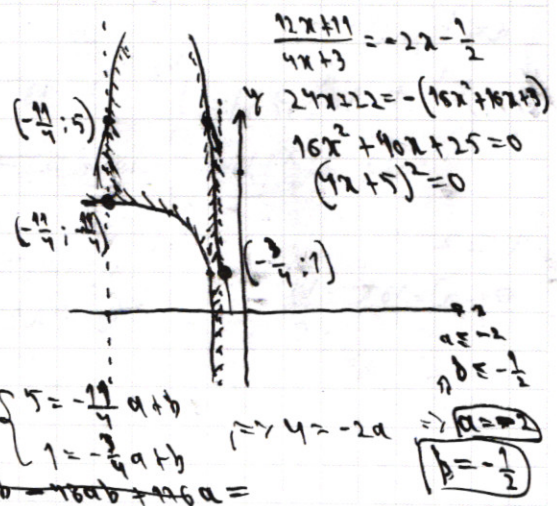 (12x+11)/(4x+3) = -2x - 1/2
24x+22 = -(16x²+16x+3)
16x² + 40x + 25 = 0
(4x+5)² = 0
y
(-11/4 ; 5)
(-11/4 ; 11/4)
(-3/4 ; 1)
x
a = -2
b = -1/2
{ 5 = -11/4 a + b
1 = -3/4 a + b
=> 4 = -2a => a = -2
b = -1/2